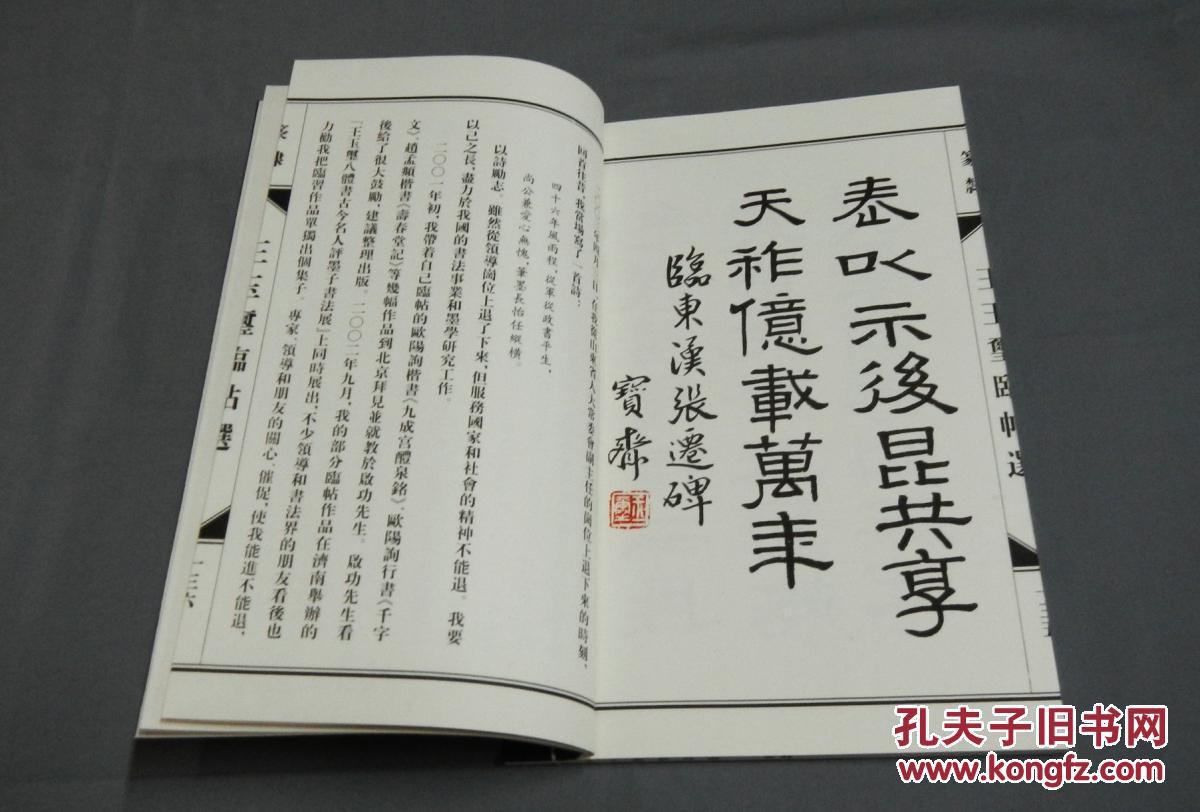 泰以示後昆共享
天祚億載萬年
臨東漢張遷碑
寶齋
四十六年風雨程，從軍從政書平生，
尚公兼愛心無愧，筆墨長怡任縱橫。
以詩勵志。雖然從領導崗位上退了下來，但服務國家和社會的精神不能退。我要
以己之長，盡力於我國的書法事業和墨學研究工作。
二〇〇一年初，我帶着自己臨帖的歐陽詢楷書《九成宮醴泉銘》、歐陽詢行書《千字
文》、趙孟頫楷書《壽春堂記》等幾幅作品到北京拜見並就教於啟功先生。啟功先生看
後給了很大鼓勵，建議整理出版。二〇〇二年九月，我的部分臨帖作品在濟南舉辦的
『王玉璽八體書古今名人評墨子書法展』上同時展出，不少領導和書法界的朋友看後也
力勸我把臨習作品單獨出個集子。專家、領導和朋友的關心、催促，使我能進不能退，
王玉璽臨帖選
一三六
孔夫子旧书网
www.kongfz.com